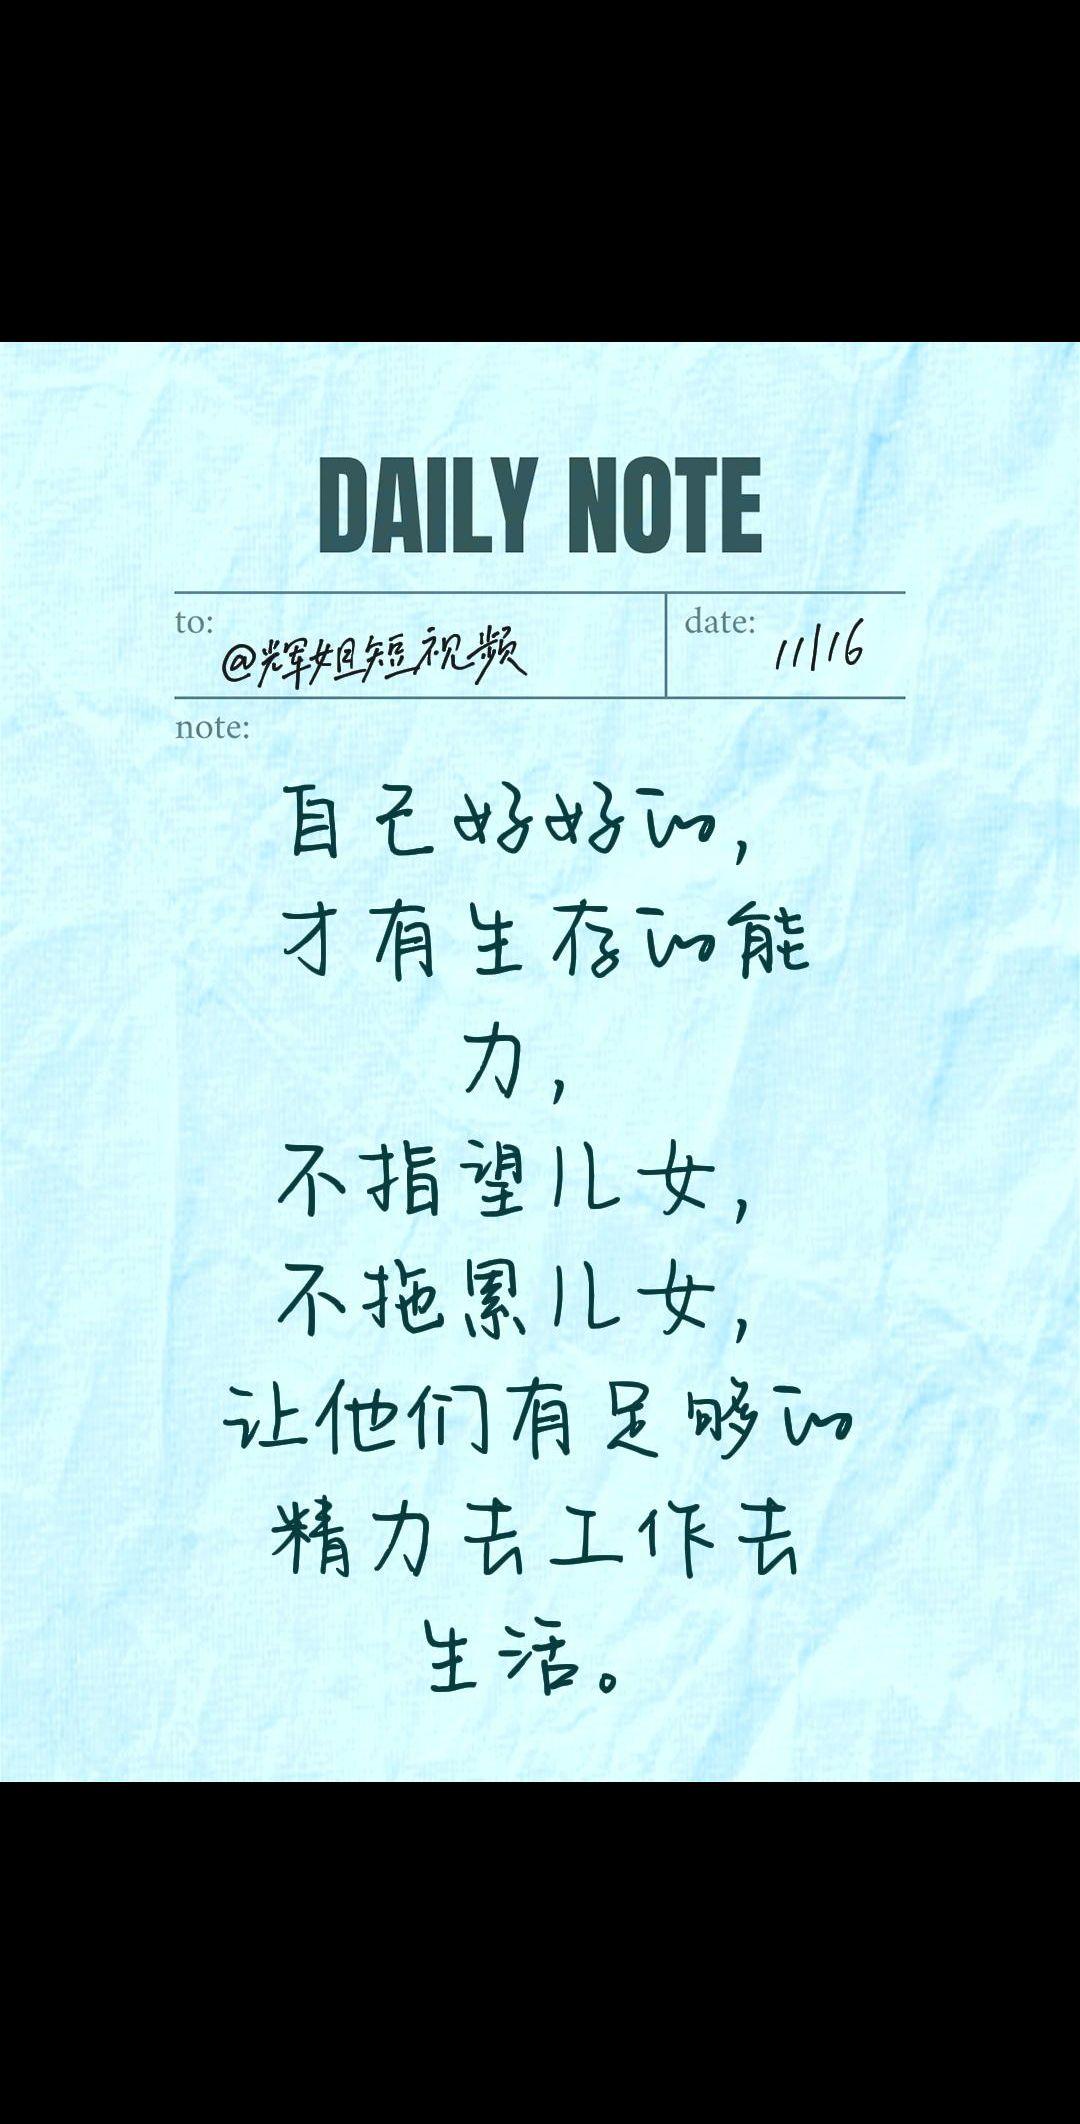 DAILY NOTE
to:
@辉姐短视频
date:
11/16
note:
自己好好的,
才有生存的能
力,
不指望儿女,
不拖累儿女,
让他们有足够的
精力去工作去
生活。